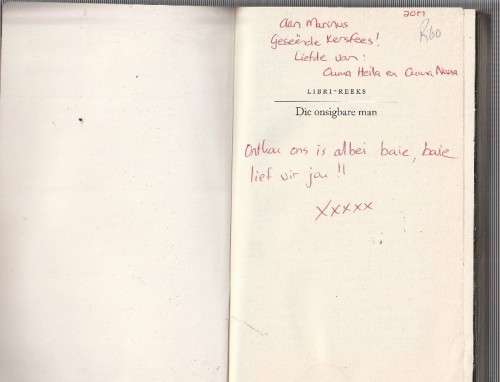 2011
R60
Aan Marcus
Geseënde Kersfees!
Liefde van:
Ouma Heila en Ouma Nassa
LIBRI-REEKS
Die onsigbare man
Onthou ons is albei baie, baie
lief vir jou !!
xxxxx